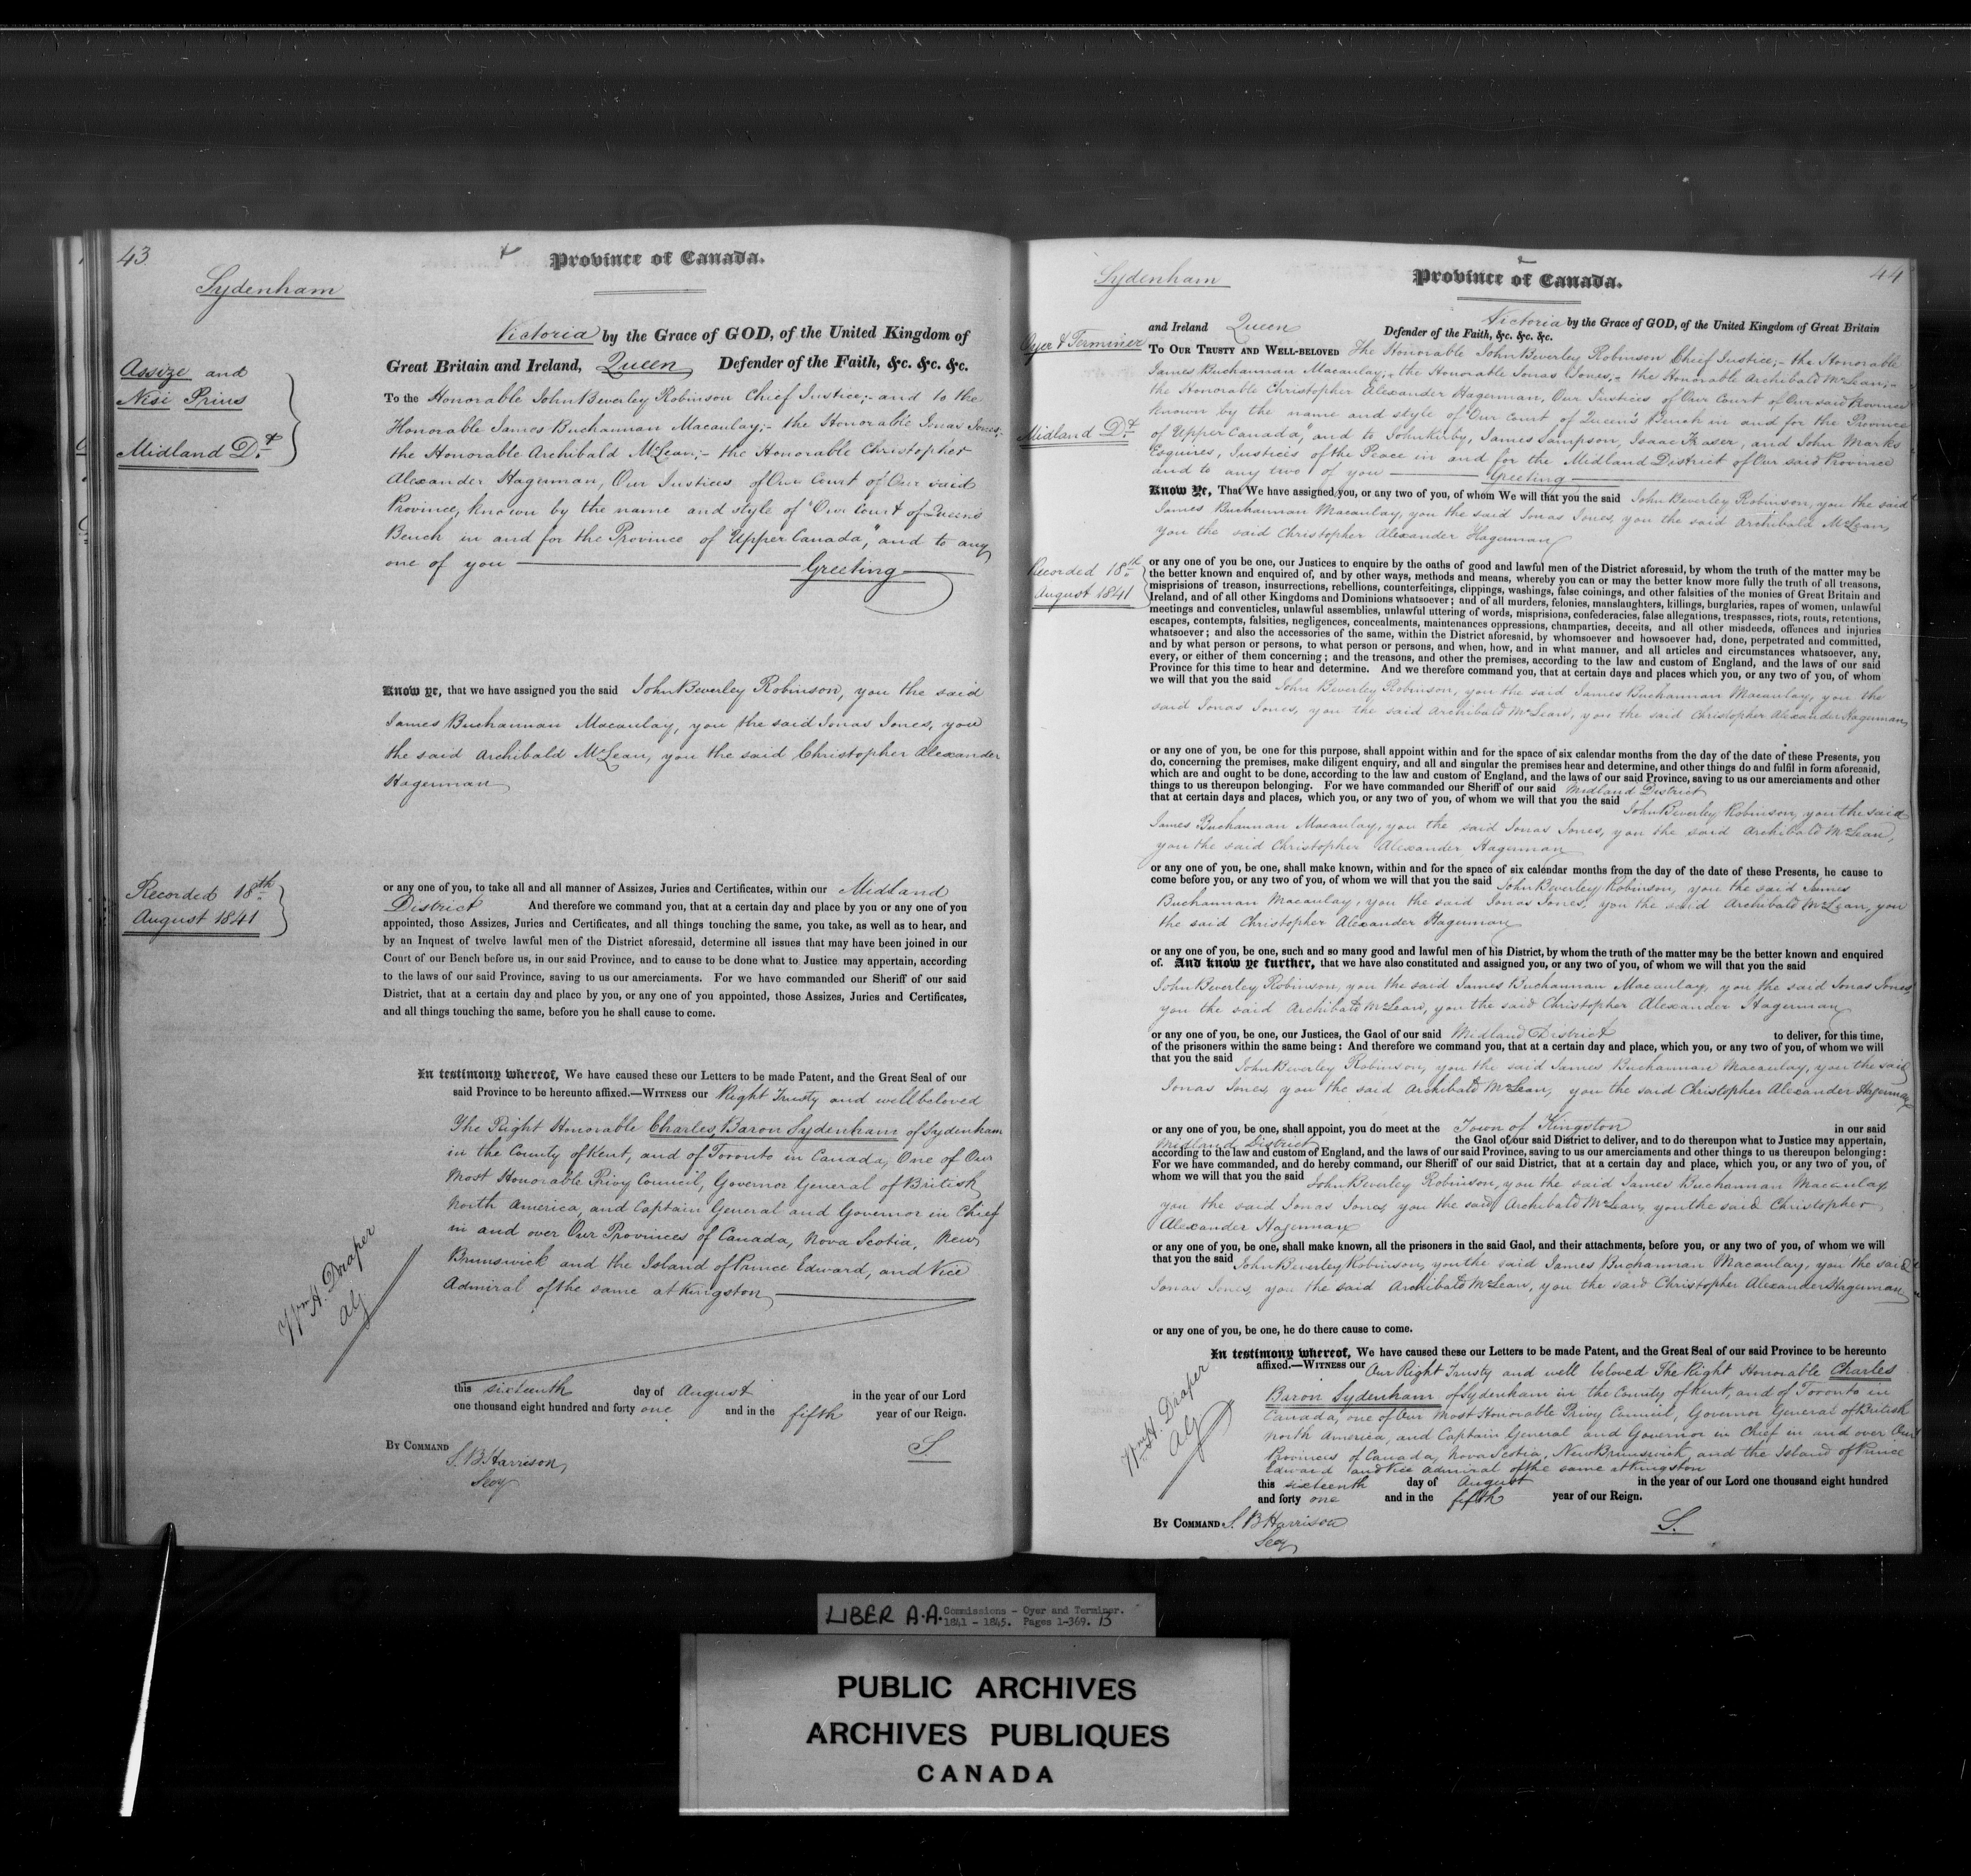 43
Province of Canada.
Sydenham
Victoria by the Grace of GOD, of the United Kingdom of
Great Britain and Ireland, Queen Defender of the Faith, &c. &c. &c.
Assize and
Nisi Prius
Midland Dt.
To the Honorable John Beverley Robinson Chief Justice;- and to the
Honorable James Buchannan Macaulay;- the Honorable Jonas Jones;-
the Honorable Archibald McLean;- the Honorable Christopher
Alexander Hagerman, Our Justices of Our Court of Our said
Province, known by the name and style of "Our Court of Queen's
Bench in and for the Province of Upper Canada", and to any
one of you Greeting
Know ye, that we have assigned you the said John Beverley Robinson, you the said
James Buchannan Macaulay, you the said Jonas Jones, you
the said Archibald McLean, you the said Christopher Alexander
Hagerman
Recorded 18th
August 1841
or any one of you, to take all and all manner of Assizes, Juries and Certificates, within our Midland
District And therefore we command you, that at a certain day and place by you or any one of you
appointed, those Assizes, Juries and Certificates, and all things touching the same, you take, as well as to hear, and
by an Inquest of twelve lawful men of the District aforesaid, determine all issues that may have been joined in our
Court of our Bench before us, in our said Province, and to cause to be done what to Justice may appertain, according
to the laws of our said Province, saving to us our amerciaments. For we have commanded our Sheriff of our said
District, that at a certain day and place by you, or any one of you appointed, those Assizes, Juries and Certificates,
and all things touching the same, before you he shall cause to come.
In testimony whereof, We have caused these our Letters to be made Patent, and the Great Seal of our
said Province to be hereunto affixed.—WITNESS our Right Trusty and well beloved
The Right Honorable Charles, Baron Sydenham of Sydenham
in the County of Kent, and of Toronto in Canada, One of Our
Most Honorable Privy Council, Governor General of British
North America, and Captain General and Governor in Chief
in and over Our Provinces of Canada, Nova Scotia, New
Brunswick and the Island of Prince Edward, and Vice
Admiral of the same at Kingston
Wm H. Draper
AG
this sixteenth day of August in the year of our Lord
one thousand eight hundred and forty one and in the fifth year of our Reign.
BY COMMAND S.
S. B. Harrison,
Secy
44
Province of Canada.
Sydenham
Victoria by the Grace of GOD, of the United Kingdom of Great Britain
and Ireland Queen Defender of the Faith, &c. &c. &c.
Oyer & Terminer
Midland Dt.
TO OUR TRUSTY AND WELL-BELOVED The Honorable John Beverley Robinson Chief Justice;- the Honorable
James Buchannan Macaulay;- the Honorable Jonas Jones;- the Honorable Archibald McLean;-
the Honorable Christopher Alexander Hagerman, Our Justices of Our Court of Our said Province
known by the name and style of "Our Court of Queen's Bench in and for the Province
of Upper Canada," and to John Kirby, James Sampson, Isaac Fraser, and John Marks
Esquires, Justices of the Peace in and for the Midland District of Our said Province
and to any two of you Greeting
Know Ye, That We have assigned you, or any two of you, of whom We will that you the said John Beverley Robinson, you the said
James Buchannan Macaulay, you the said Jonas Jones, you the said Archibald McLean,
you the said Christopher Alexander Hagerman
Recorded 18th
August 1841
or any one of you be one, our Justices to enquire by the oaths of good and lawful men of the District aforesaid, by whom the truth of the matter may be
the better known and enquired of, and by other ways, methods and means, whereby you can or may the better know more fully the truth of all treasons,
misprisions of treason, insurrections, rebellions, counterfeitings, clippings, washings, false coinings, and other falsities of the monies of Great Britain and
Ireland, and of all other Kingdoms and Dominions whatsoever; and of all murders, felonies, manslaughters, killings, burglaries, rapes of women, unlawful
meetings and conventicles, unlawful assemblies, unlawful uttering of words, misprisions, confederacies, false allegations, trespasses, riots, routs, retentions,
escapes, contempts, falsities, negligences, concealments, maintenances oppressions, champarties, deceits, and all other misdeeds, offences and injuries
whatsoever; and also the accessories of the same, within the District aforesaid, by whomsoever and howsoever had, done, perpetrated and committed,
and by what person or persons, to what person or persons, and when, how, and in what manner, and all articles and circumstances whatsoever, any,
every, or either of them concerning; and the treasons, and other the premises, according to the law and custom of England, and the laws of our said
Province for this time to hear and determine. And we therefore command you, that at certain days and places which you, or any two of you, of whom
we will that you the said John Beverley Robinson, you the said James Buchannan Macaulay, you the
said Jonas Jones, you the said Archibald McLean, you the said Christopher Alexander Hagerman,
or any one of you, be one for this purpose, shall appoint within and for the space of six calendar months from the day of the date of these Presents, you
do, concerning the premises, make diligent enquiry, and all and singular the premises hear and determine, and other things do and fulfil in form aforesaid,
which are and ought to be done, according to the law and custom of England, and the laws of our said Province, saving to us our amerciaments and other
things to us thereupon belonging. For we have commanded our Sheriff of our said Midland District
that at certain days and places, which you, or any two of you, of whom we will that you the said John Beverley Robinson, you the said
James Buchannan Macaulay, you the said Jonas Jones, you the said Archibald McLean,
you the said Christopher Alexander Hagerman
or any one of you, be one, shall make known, within and for the space of six calendar months from the day of the date of these Presents, he cause to
come before you, or any two of you, of whom we will that you the said John Beverley Robinson, you the said James
Buchannan Macaulay, you the said Jonas Jones, you the said Archibald McLean, you
the said Christopher Alexander Hagerman
or any one of you, be one, such and so many good and lawful men of his District, by whom the truth of the matter may be the better known and enquired
of. And know ye further, that we have also constituted and assigned you, or any two of you, of whom we will that you the said
John Beverley Robinson, you the said James Buchannan Macaulay, you the said Jonas Jones,
you the said Archibald McLean, you the said Christopher Alexander Hagerman
or any one of you, be one, our Justices, the Gaol of our said Midland District to deliver, for this time,
of the prisoners within the same being: And therefore we command you, that at a certain day and place, which you, or any two of you, of whom we will
that you the said John Beverley Robinson, you the said James Buchannan Macaulay, you the said
Jonas Jones, you the said Archibald McLean, you the said Christopher Alexander Hagerman
or any one of you, be one, shall appoint, you do meet at the Town of Kingston in our said
Midland District the Gaol of our said District to deliver, and to do thereupon what to Justice may appertain,
according to the law and custom of England, and the laws of our said Province, saving to us our amerciaments and other things to us thereupon belonging:
For we have commanded, and do hereby command, our Sheriff of our said District, that at a certain day and place, which you, or any two of you, of
whom we will that you the said John Beverley Robinson, you the said James Buchannan Macaulay
you the said Jonas Jones, you the said Archibald McLean, you the said Christopher
Alexander Hagerman
or any one of you, be one, shall make known, all the prisoners in the said Gaol, and their attachments, before you, or any two of you, of whom we will
that you the said John Beverley Robinson, you the said James Buchannan Macaulay, you the said
Jonas Jones, you the said Archibald McLean, you the said Christopher Alexander Hagerman
or any one of you, be one, he do there cause to come.
In testimony whereof, We have caused these our Letters to be made Patent, and the Great Seal of our said Province to be hereunto
affixed.—WITNESS our Our Right Trusty and well beloved The Right Honorable Charles
Baron Sydenham of Sydenham in the County of Kent, and of Toronto in
Canada, one of Our Most Honorable Privy Council, Governor General of British
North America, and Captain General and Governor in Chief in and over Our
Provinces of Canada, Nova Scotia, New Brunswick, and the Island of Prince
Edward and Vice Admiral of the same at Kingston
Wm H. Draper
AG
this sixteenth day of August in the year of our Lord one thousand eight hundred
and forty one and in the fifth year of our Reign.
BY COMMAND S. B Harrison S.
Secy
LIBER A.A. Commissions - Oyer and Terminer.
1841 - 1845. Pages 1-369. 13
PUBLIC ARCHIVES
ARCHIVES PUBLIQUES
CANADA